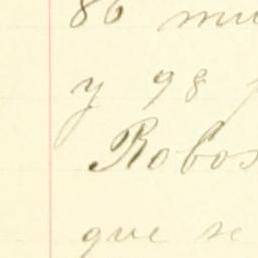 86 mu
y 98
Robos
que se